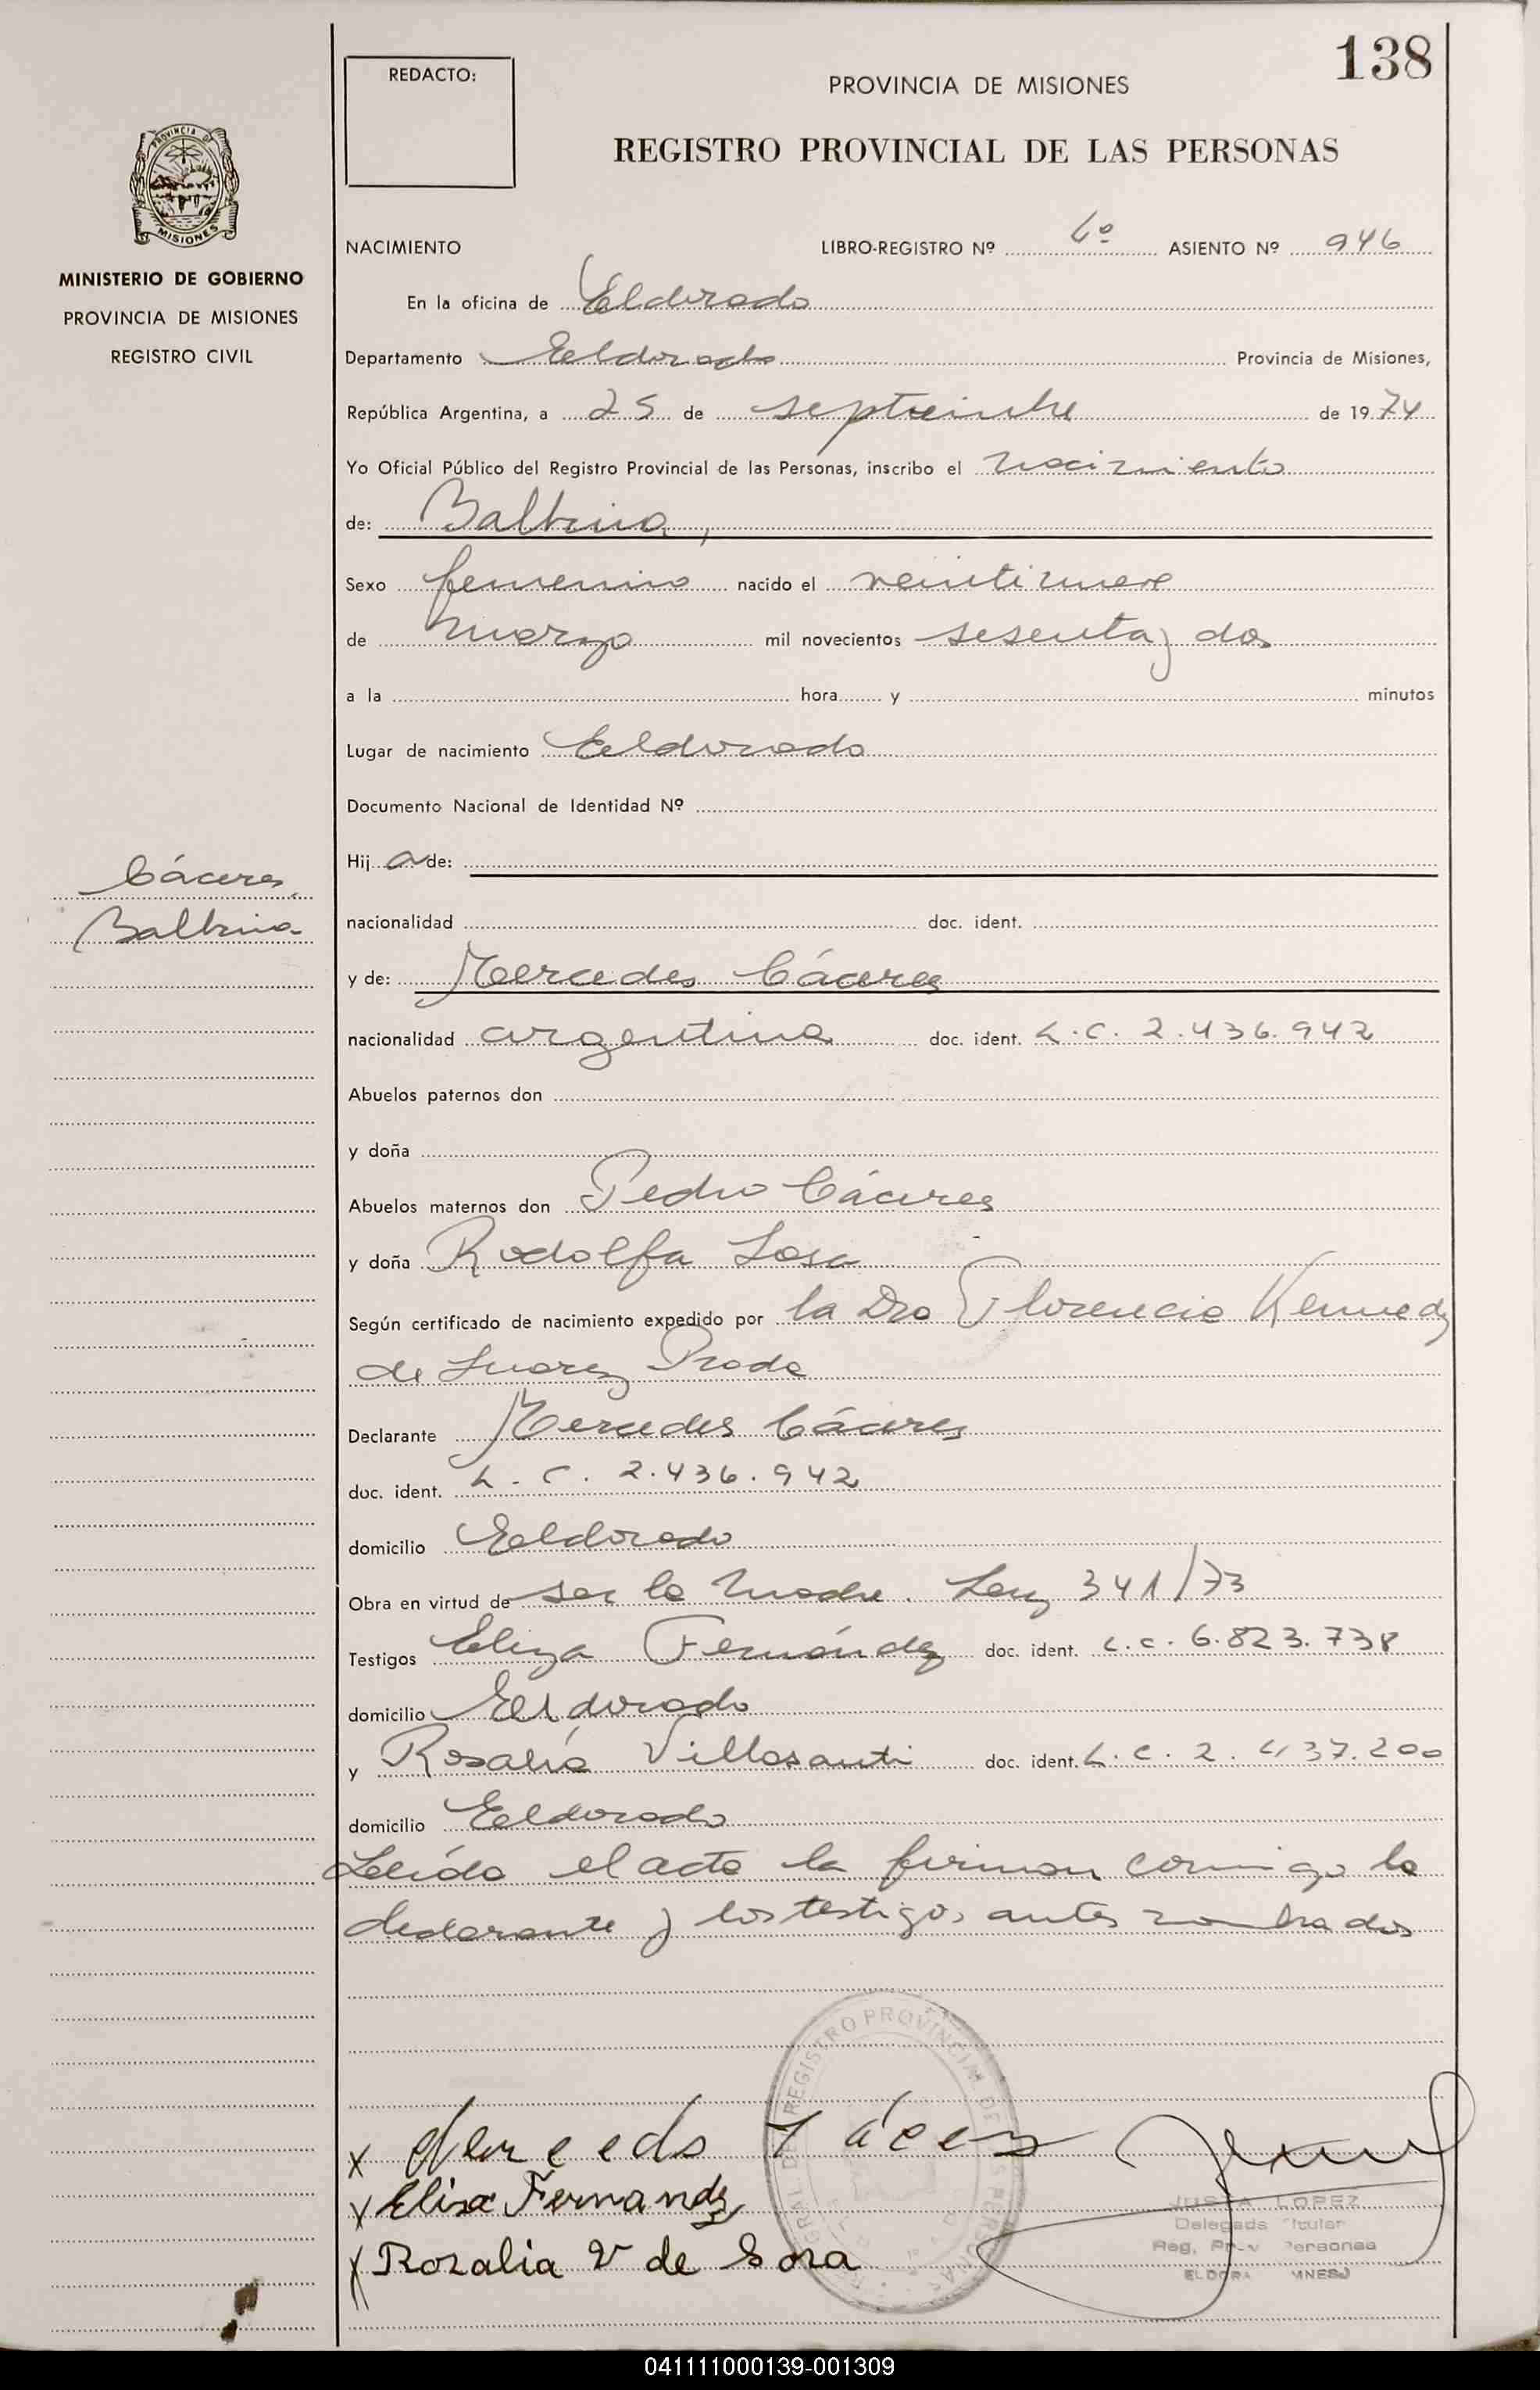 138
REDACTO:
PROVINCIA DE MISIONES
REGISTRO PROVINCIAL DE LAS PERSONAS
PROVINCIA DE
MISIONES
MINISTERIO DE GOBIERNO
PROVINCIA DE MISIONES
REGISTRO CIVIL
NACIMIENTO LIBRO-REGISTRO Nº 6º ASIENTO Nº 946
En la oficina de Eldorado
Departamento Eldorado Provincia de Misiones,
República Argentina, a 25 de septiembre de 1974
Yo Oficial Público del Registro Provincial de las Personas, inscribo el nacimiento
de: Balbina,
Sexo femenino nacido el veintinueve
de marzo mil novecientos sesenta y dos
a la hora y minutos
Lugar de nacimiento Eldorado
Documento Nacional de Identidad Nº
Hij a de:
Cáceres,
Balbina
nacionalidad doc. ident.
y de: Mercedes Cáceres
nacionalidad argentina doc. ident. L.C. 2.436.942
Abuelos paternos don
y doña
Abuelos maternos don Pedro Cáceres
y doña Rodolfa Sosa
Según certificado de nacimiento expedido por la Dra Florencia Kennedy
de Suarez Prada
Declarante Mercedes Cáceres
doc. ident. L.C. 2.436.942
domicilio Eldorado
Obra en virtud de ser la madre. Ley 341/73
Testigos Eliza Fernández doc. ident. L.C. 6.823.738
domicilio Eldorado
y Rosalía Villasanti doc. ident. L.C. 2.437.200
domicilio Eldorado
Leída el acta la firman conmigo la
declarante y los testigos antes nombrados
REGISTRO PROVINCIAL DE LAS PERSONAS
x Merceds Cáces
x Elisa Fernandz
x Rozalia V de Sosa
JUSTA LOPEZ
Delegada Titular
Reg. Prov Personas
ELDORA MNES
041111000139-001309